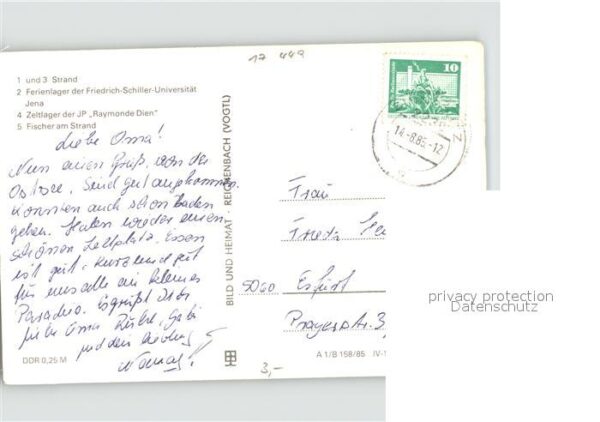 17 449
1 und 3 Strand
2 Ferienlager der Friedrich-Schiller-Universität
Jena
4 Zeltlager der JP „Raymonde Dien"
5 Fischer am Strand
Liebe Oma!
Nun einen Gruß von der
Ostsee. Sind gut angekommen.
Konnten auch schon baden
gehen. Haben wieder einen
schönen Zeltplatz. Essen
ist gut, kurz und gut
für uns alle ein kleines
Paradies. Es grüßt Dich
liebe Oma Gabi
mit den
DDR 0,25 M
BILD UND HEIMAT · REICHENBACH (VOGTL)
10
14.-8.85-12
Frau
5060 Erfurt
Pragerstr. 3
3,-
A 1/B 158/85 IV-1
privacy protection
Datenschutz